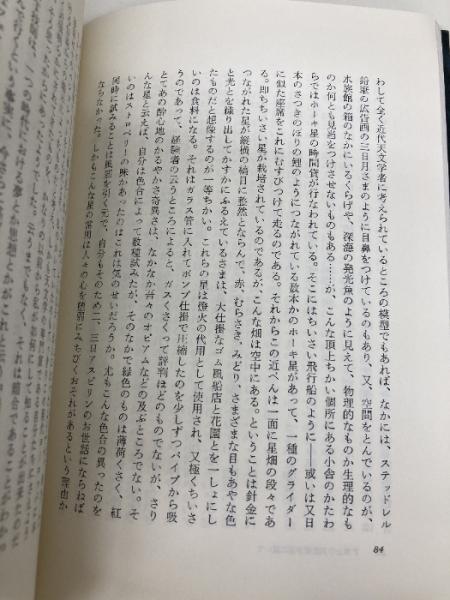 わして全く近代天文学者に考えられているところの模型でもあれば、なかには、ステッドレル
鉛筆の広告画の三日月さまのように目鼻をつけているのもあり、又、空間をとんでいるのが、
水族館の箱のなかにいるくらげや、深海の発光魚のように見えて、物理的なものか生理的なも
のか何とも見当をつけさせないものもある……が、こんな頂上ちかい個所にある小舎のかたわ
らではホーキ星の時間貸が行なわれている。そこにはちいさい飛行船のように――或いは又日
本のさつきのぼりの鯉のようにつながれている数本のホーキ星があって、一種のグライダー
に似た座席をこれにむすびつけて走るのである。それからこの近ぺんは一面に星畑の段々であ
る。即ちちいさい星が栽培されているのであるが、こんな畑は空中にある。ということは針金に
つながれた星が縦横の線目に整然とならんで、赤、むらさき、みどり、さまざまな目もあやな色
と光とを繰り出してかすかにふるえているさまは、大仕掛なゴム風船店と花園とを一しょにし
たものだと想像するのが一等ちかい。これらの星は燈火の代用として使用され、又極くちいさ
いのは食料になる。それはガラス管に入れてポンプ仕掛で圧縮したのを少しずつパイプから吸
うのであって、経験者の云うところによると、ガスくさくって評判ほどのものでないが、さり
とてあの酔心地のかるやかさ奇異さは、なかなか昔々のオピアムなどの及ぶところでない。そ
んな星と云えば、自分は色合によって数種試みたが、そのなかで緑色のものは薄荷くさく、紅
いのはストロベリーの味があったのはこれは気のせいだろうか。尤もこんな色合の異ったのを
同時に試みることは風邪を引く元で、自分もそのため二、三日アスピリンのお世話にならねば
ならなかった。しかもこんな星の常用は人々の心を惰弱にみちびくおそれがあるという理由か
84